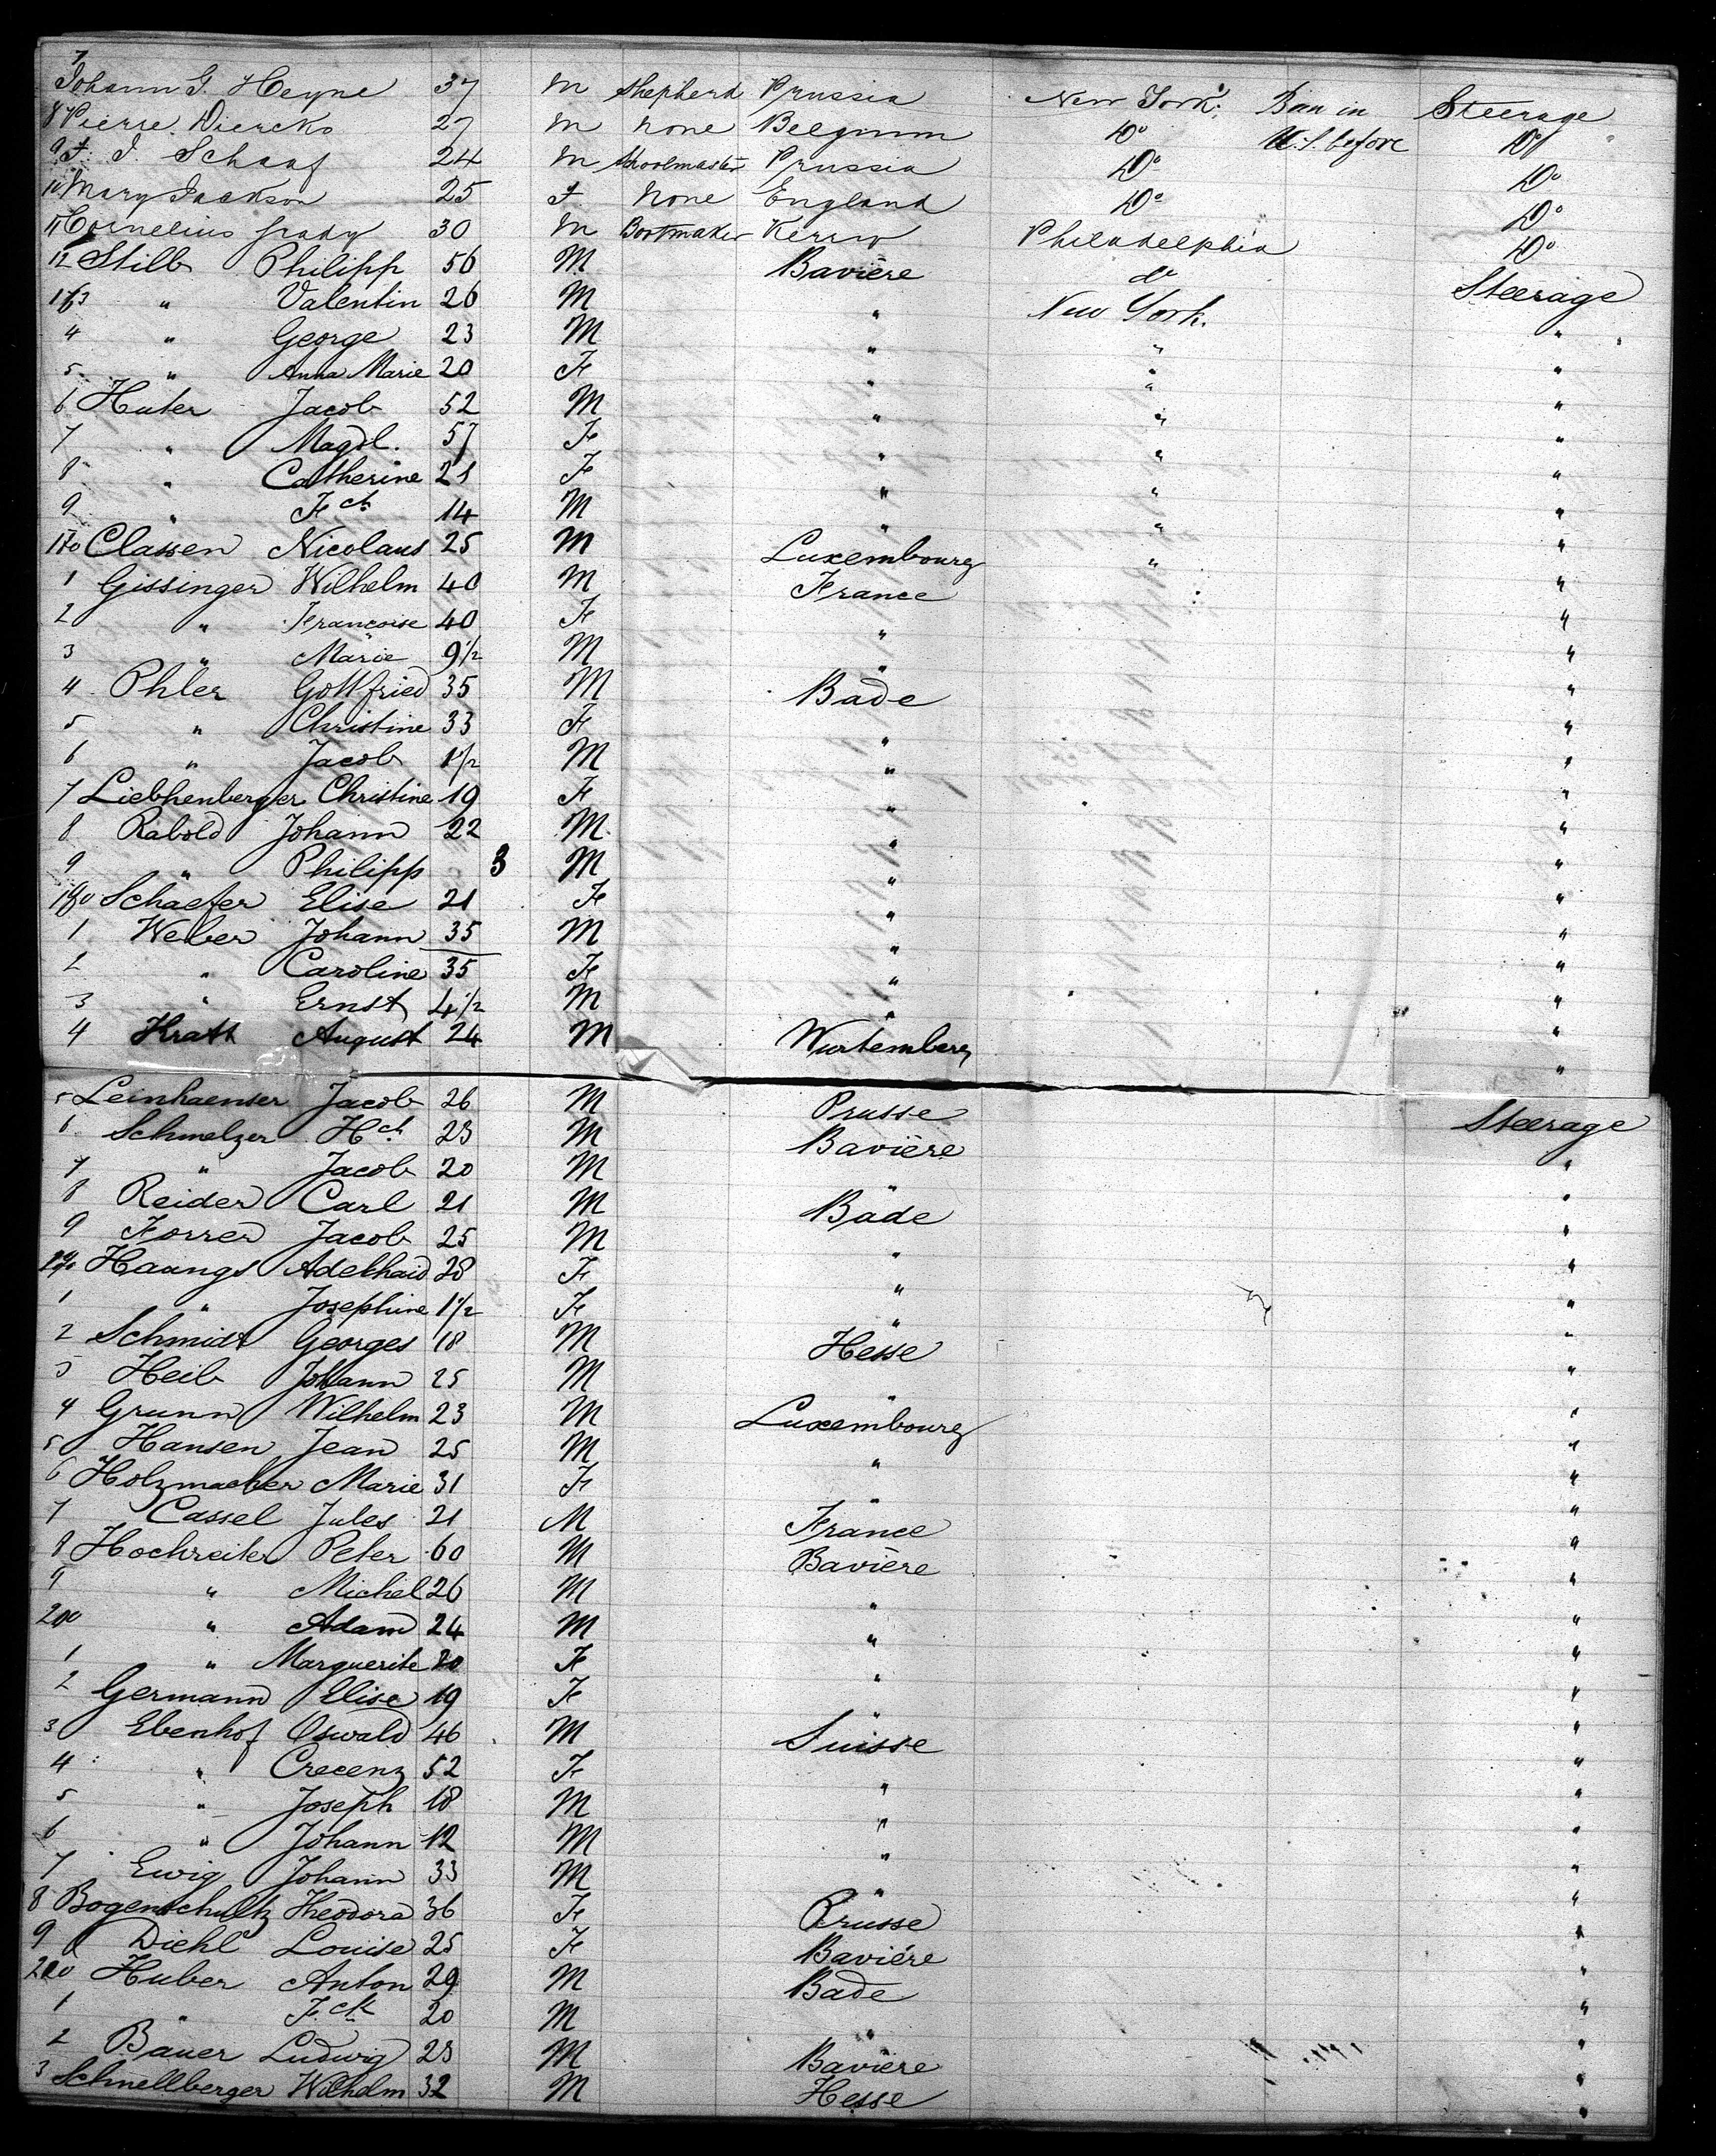 7 Johann G. Heyne 37 M Shepherd Prussia New York. Ban in Steerage
8 Pierre Diercks 27 M None Belgium Do U.S. before Do
9 F. I. Schaaf 24 M Schoolmaster Prussia Do Do
10 Mary Jackson 25 F. None England Do Do
11 Cornelius Grady 30 M Bootmaker Kerry Philadelphia Do
12 Stilb Philipp 56 M Bavière do Steerage
163 " Valentin 26 M " New York. "
4 " George 23 M " " "
5 " Anna Marie 20 F " " "
6 Huter Jacob 52 M " " "
7 " Magdl. 57 F " " "
8 " Catherine 21 F " " "
9 " Fch 14 M " " "
170 Classen Nicolaus 25 M Luxembourg " "
1 Gissinger Wilhelm 40 M France "
2 " Francoise 40 F " "
3 " Marie 9 1/2 M " "
4 Phler Gottfried 35 M Bade "
5 " Christine 33 F " "
6 " Jacob 1 1/2 M " "
7 Liebhenberger Christine 19 F " "
8 Rabold Johann 22 M " "
9 " Philipp 3 M " "
180 Schaefer Elise 21 F " "
1 Weber Johann 35 M " "
2 " Caroline 35 F " "
3 " Ernst 4 1/2 M " "
4 Hrath August 24 M Wurtemberg "
5 Leinhaenser Jacob 26 M Prusse Steerage
6 Schmelzer Hch 23 M Bavière "
7 " Jacob 20 M " "
8 Reider Carl 21 M Bade "
9 Forrer Jacob 25 M " "
190 Haangs Adelhaid 28 F " "
1 " Josephine 1 1/2 F " "
2 Schmidt Georges 18 M Hesse "
3 Heib Johann 25 M " "
4 Grunn Wilhelm 23 M Luxembourg "
5 Hansen Jean 25 M " "
6 Holzmacher Marie 31 F " "
7 Cassel Jules 21 M France "
8 Hochreiter Peter 60 M Bavière "
9 " Michel 26 M " "
200 " Adam 24 M " "
1 " Marguerite 20 F " "
2 Germann Elise 19 F " "
3 Ebenhof Oswald 46 M Suisse "
4 " Crecenz 52 F " "
5 " Joseph 18 M " "
6 " Johann 12 M " "
7 Ewig Johann 33 M " "
8 Bogenschultz Theodora 36 F Prusse "
9 Diehl Louise 25 F Bavière "
210 Huber Anton 29 M Bade "
1 " Fck 20 M " "
2 Bauer Ludwig 23 M Bavière "
3 Schnellberger Wilhelm 32 M Hesse "